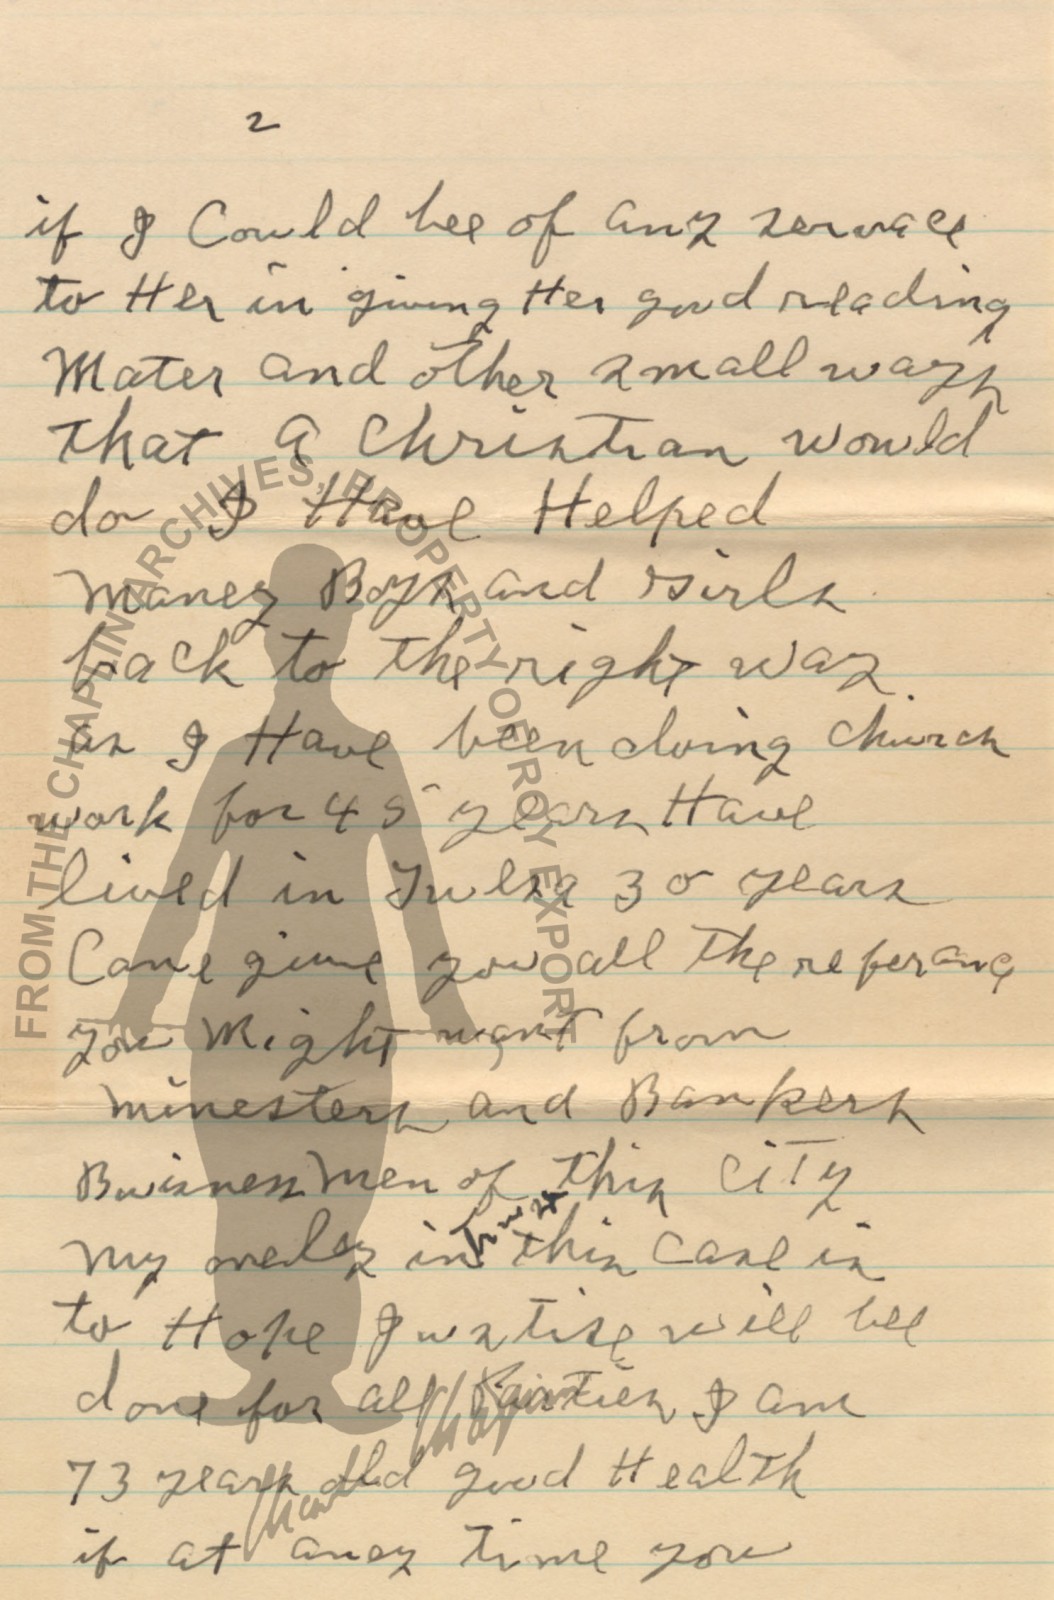 2
if I Could bee of any servace
to Her in giving Her good reading
Mater and other small ways
that a Christian would
do I Have Helped
Maney Boys and Girls
back to the right way
as I Have been doing church
work for 45 years Have
lived in Tulsa 30 years
Cane give you all the referance
you Might want from
Minesters and Bankers
Buisness Men of this CiTy
My only in this case is
to Hope Justise will bee
done for all Parties I am
73 years old good Health
if at aney time you
FROM THE CHAPLIN ARCHIVES, PROPERTY OF ROY EXPORT
Charlie Chaplin